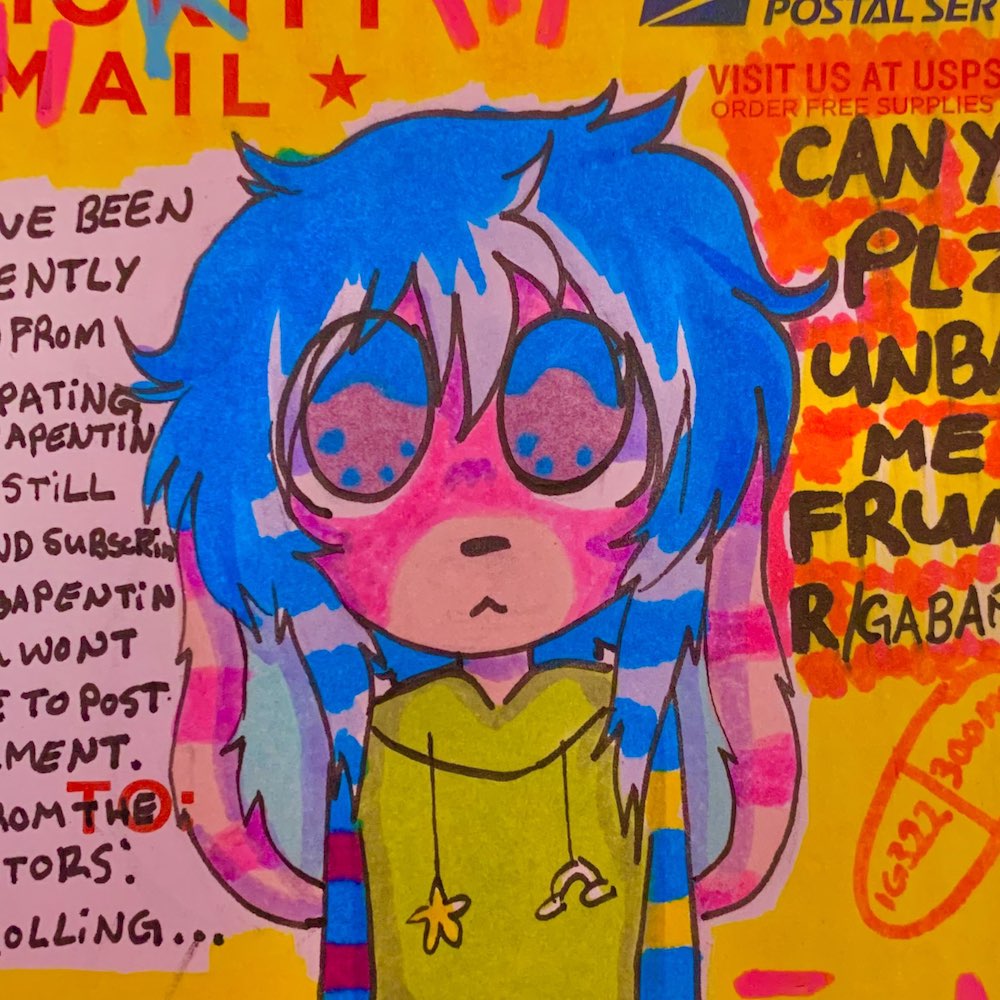 PRIORITY
MAIL ★
POSTAL SER
VISIT US AT USPS
ORDER FREE SUPPLIES
VE BEEN
ENTLY
FROM
PATING
APENTIN
STILL
ND SUBSCRIB
BAPENTIN
WONT
E TO POST
MENT.
TO:
ROM THE
TORS:
OLLING...
CAN Y
PLZ
UNBA
ME
FRUM
R/GABA
1G322
300M